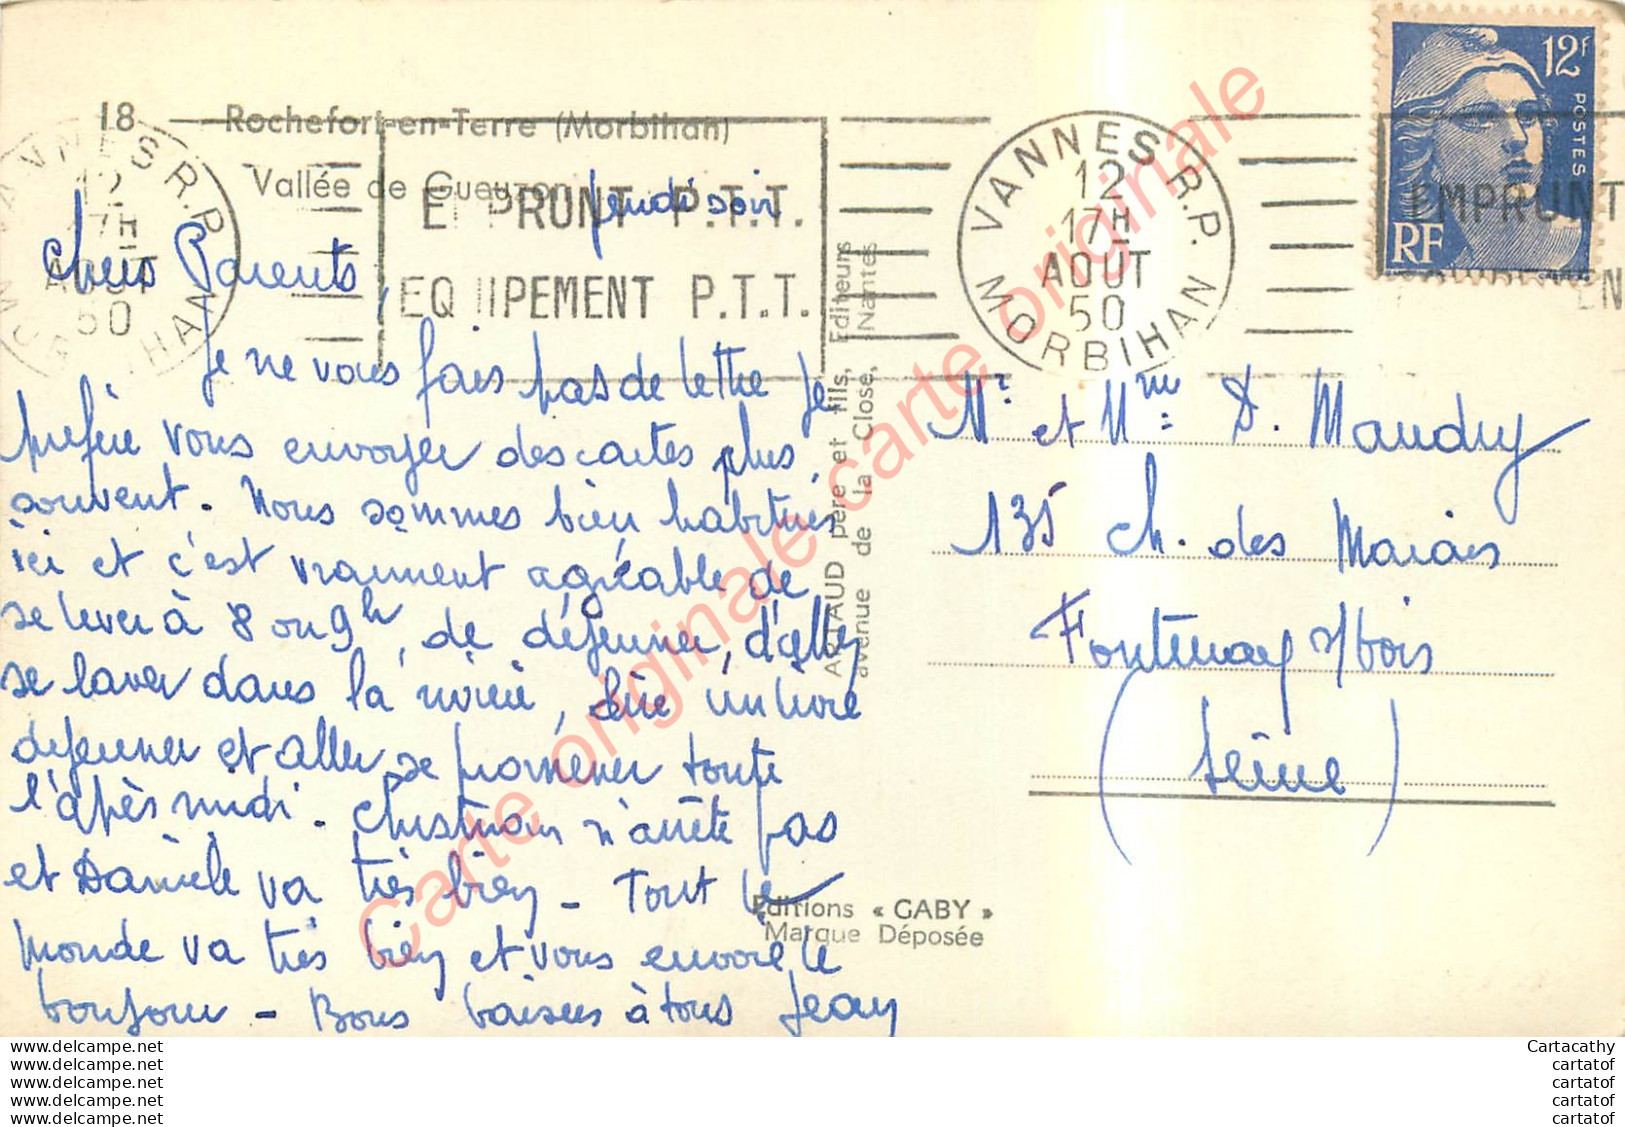 18 Rochefort-en-Terre (Morbihan)
Vallée de Gueuzon
Jeudi soir
Chers Parents,
Je ne vous fais pas de lettre je
préfère vous envoyer des cartes plus
souvent. Nous sommes bien habitués
ici et c'est vraiment agréable de
se lever à 8 ou 9h, de déjeuner, d'aller
se laver dans la rivière, lire un livre
déjeuner et aller se promener toute
l'après midi. Christian n'arrête pas
et Danièle va très bien - Tout le
monde va très bien et vous envoie le
bonjour - Bons baisers à tous Jean
VANNES R.P.
12
17H
AOUT
50
MORBIHAN
EMPRUNT P.T.T.
EQUIPEMENT P.T.T.
VANNES R.P.
12
17H
AOUT
50
MORBIHAN
EMPRUNT
12F
POSTES
RF
ARTAUD père et fils, Editeurs
avenue de la Close, Nantes
Mr et Mme D. Maudry
135 ch. des Marais
Fontenay s/bois
(Seine)
Editions « GABY »
Marque Déposée
Carte originale carte originale carte originale
www.delcampe.net
www.delcampe.net
www.delcampe.net
www.delcampe.net
www.delcampe.net
Cartacathy
cartatof
cartatof
cartatof
cartatof